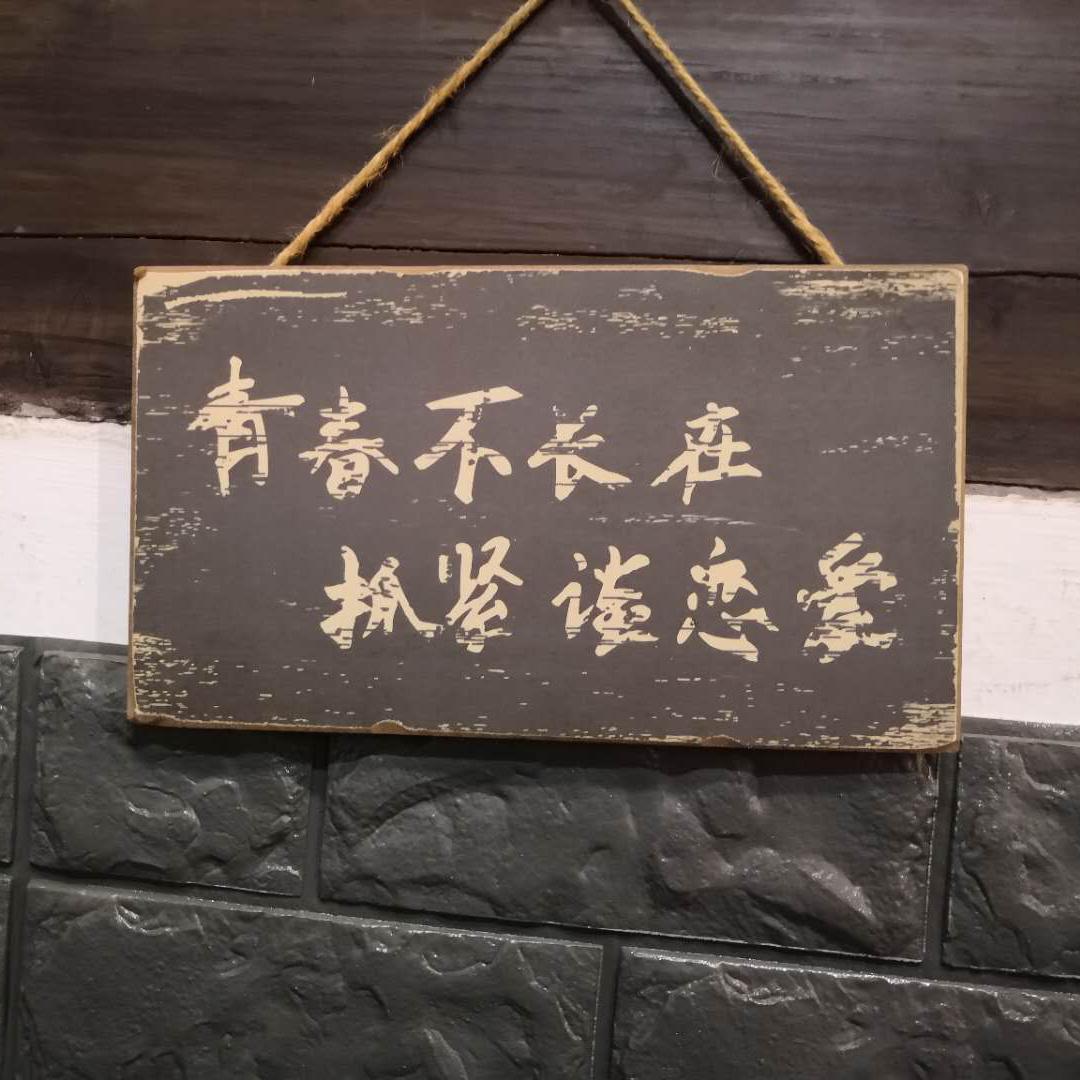 青春不长在
抓紧谈恋爱